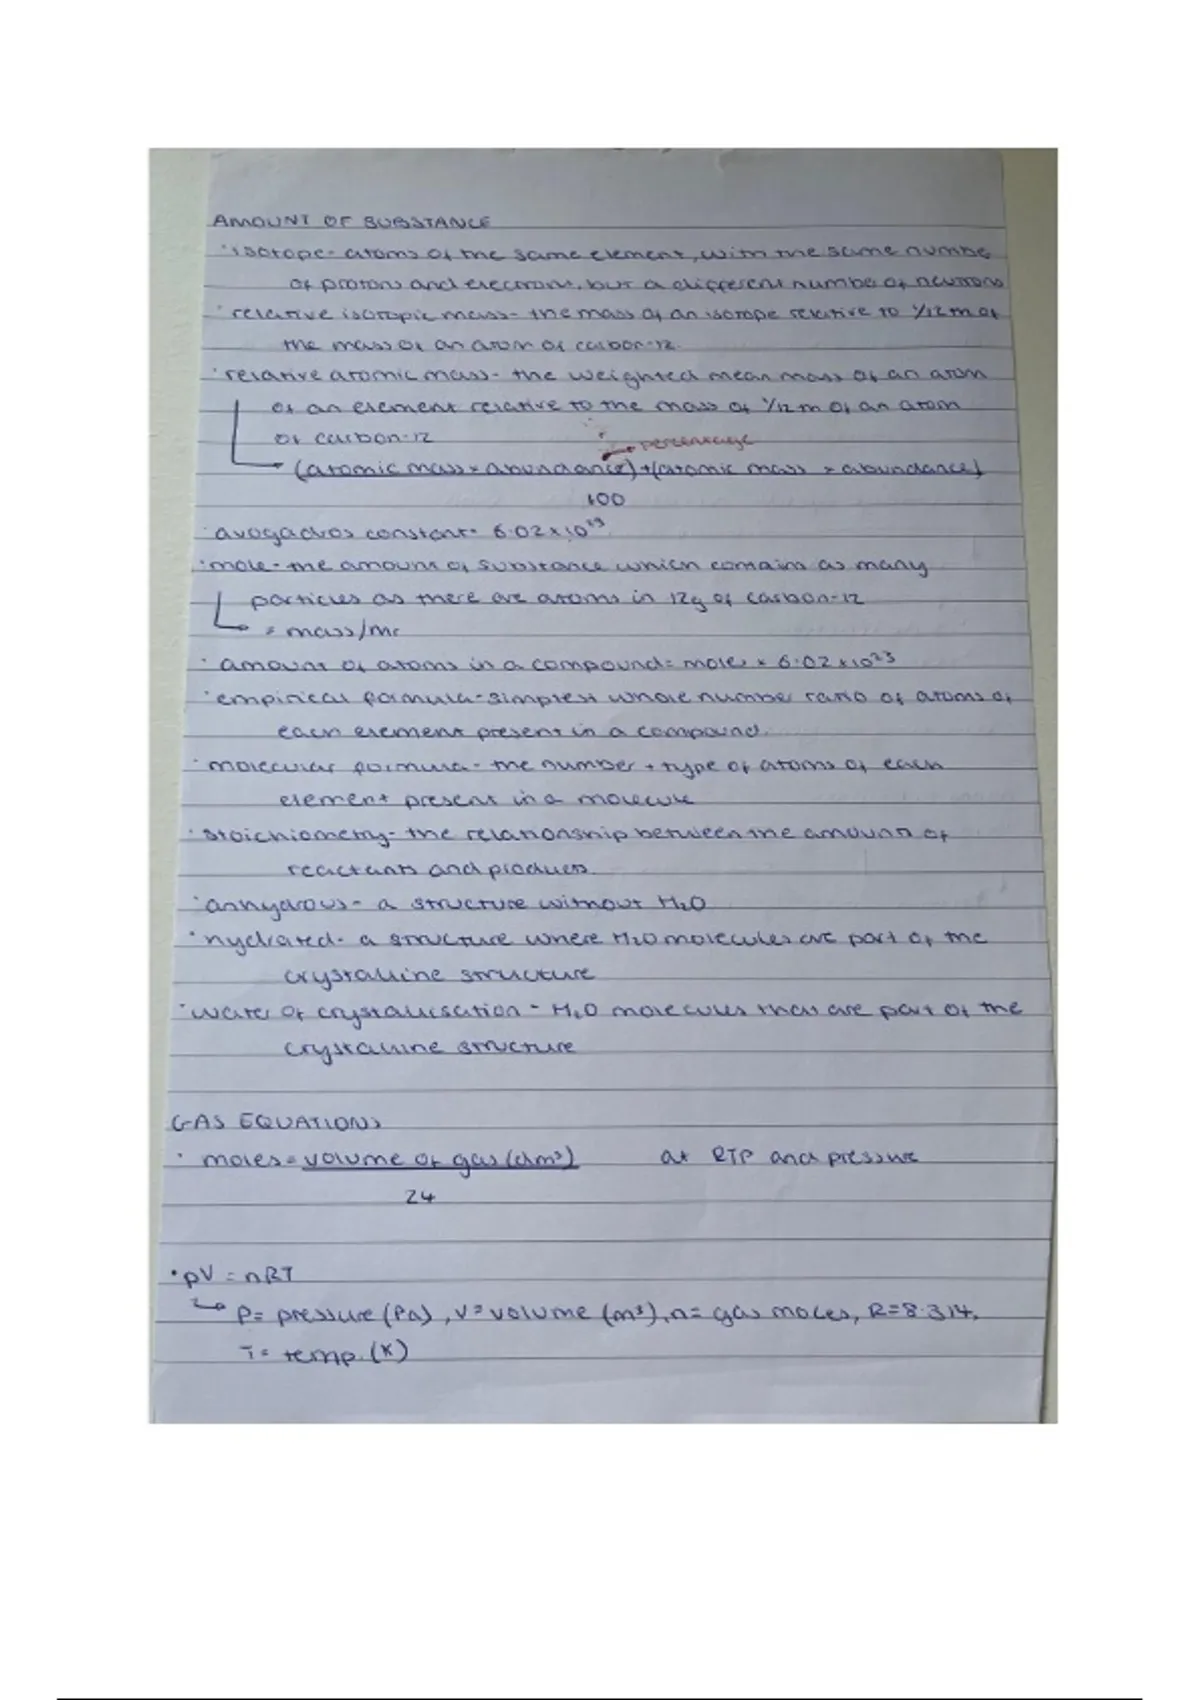 AMOUNT OF SUBSTANCE
• isotope - atoms of the same element, with the same numbe
of protons and electrons, but a different number of neutrons
• relative isotopic mass - the mass of an isotope relative to 1/12 th of
the mass of an atom of carbon-12.
• relative atomic mass - the weighted mean mass of an atom
of an element relative to the mass of 1/12 th of an atom
of carbon-12
percentage
(atomic mass × abundance) + (atomic mass × abundance)
100
• avogadros constant = 6.02 × 10²³
• mole - the amount of substance which contains as many
particles as there are atoms in 12g of carbon-12
= mass/mr
• amount of atoms in a compound = moles × 6.02 × 10²³
• empirical formula - simplest whole number ratio of atoms of
each element present in a compound.
• molecular formula - the number + type of atoms of each
element present in a molecule
• stoichiometry - the relationship between the amounts of
reactants and products.
• anhydrous - a structure without H₂O
• hydrated - a structure where H₂O molecules are part of the
crystalline structure
• water of crystallisation - H₂O molecules that are part of the
crystalline structure
GAS EQUATIONS
• moles = volume of gas (dm³) at RTP and pressure
24
• pV = nRT
P = pressure (Pa), V = volume (m³), n = gas moles, R = 8.314,
T = temp. (K)